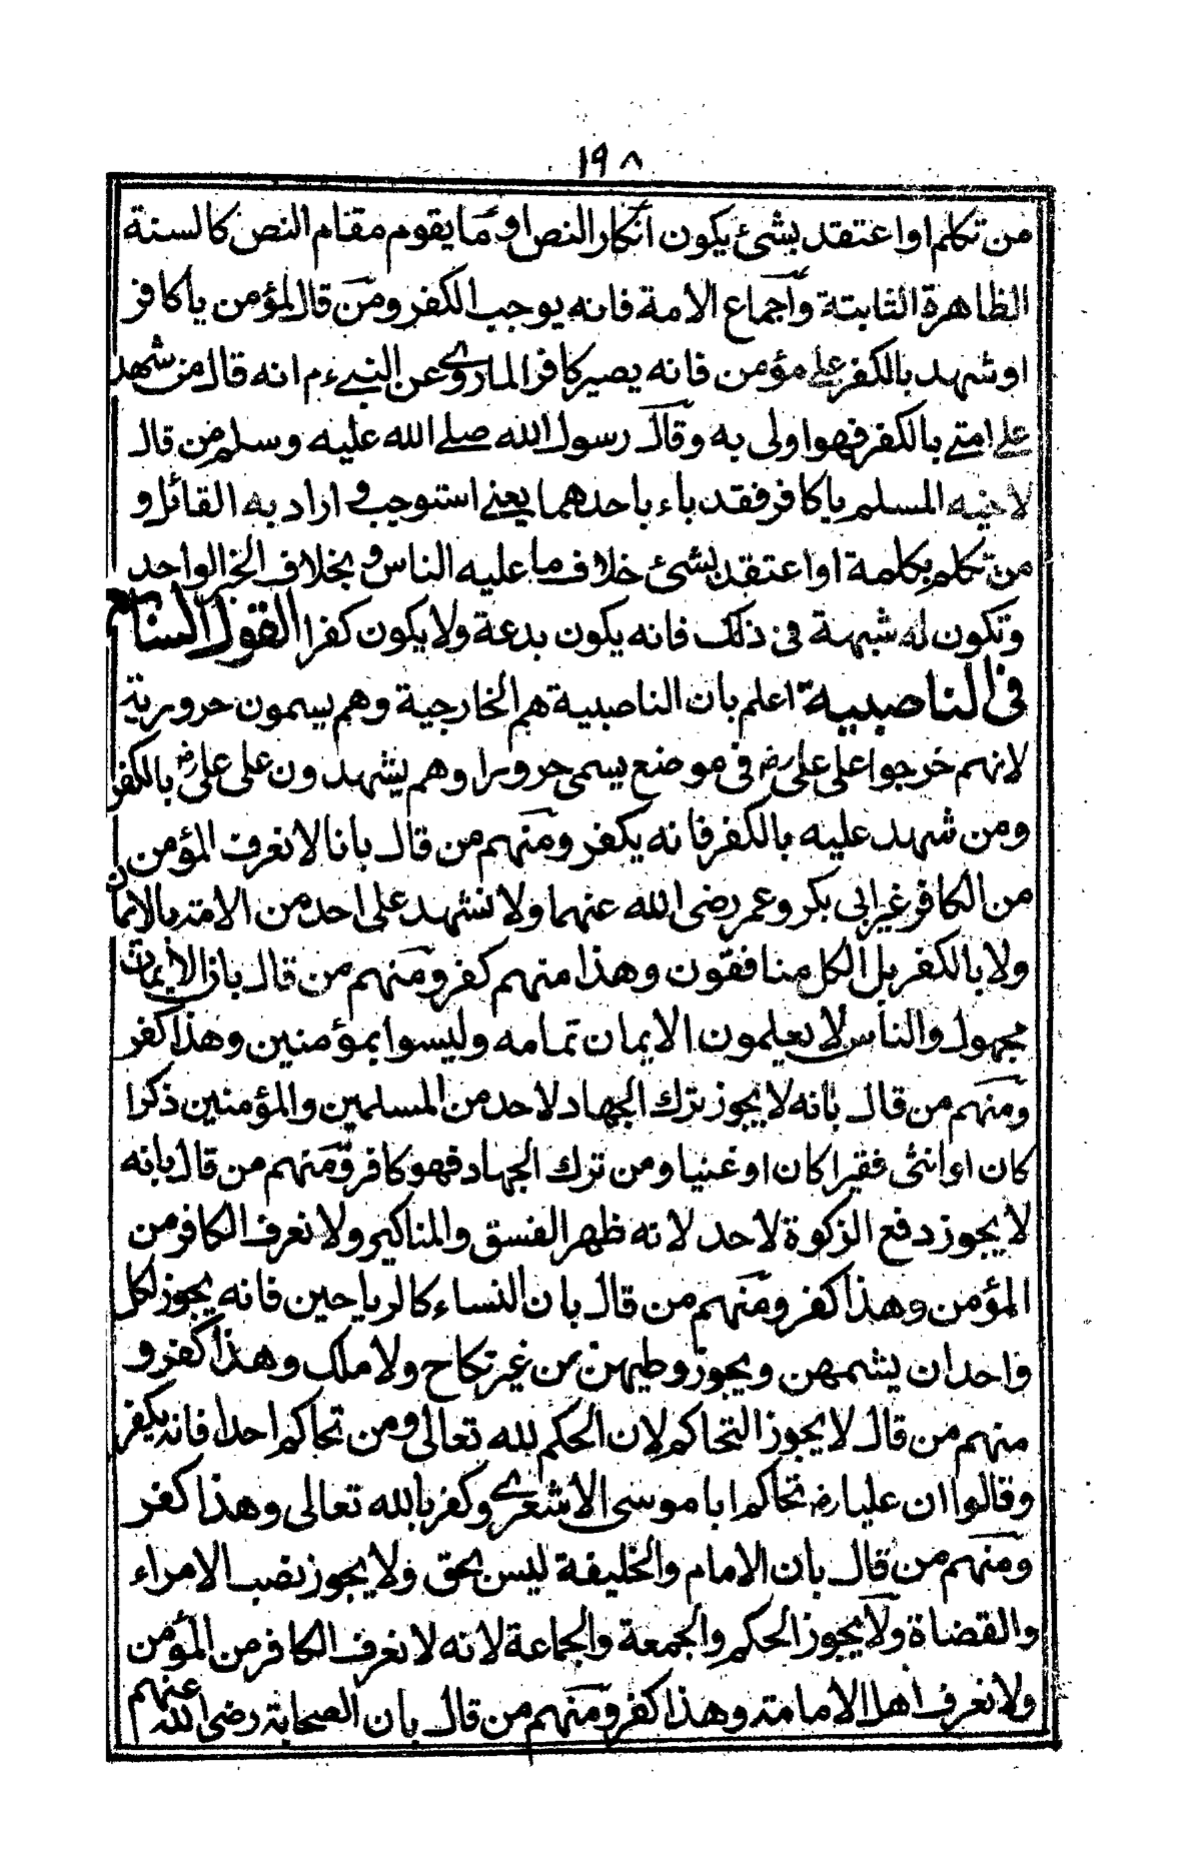 ١٩٨
من تكلم او اعتقد بشئ يكون انكار النص او ما يقوم مقام النص كالسنة
الظاهرة الثابتة واجماع الامة فانه يوجب الكفر ومن قال لمؤمن يا كافر
او شهد بالكفر على مؤمن فانه يصير كافر الما روى عن النبي ءم انه قال من شهد
على امتي بالكفر فهو اولى به وقال رسول الله صلى الله عليه وسلم من قال
لاخيه المسلم يا كافر فقد باء باحدهما يعنى استوجب و اراد به القائل و
من تكلم بكلمة او اعتقد بشئ خلاف ما عليه الناس و بخلاف الخبر الواحد
وتكون له شبهة في ذلك فانه يكون بدعة ولا يكون كفرا القول السابع
فى الناصبية اعلم بان الناصبية هم الخارجية وهم يسمون حرورية
لانهم خرجوا على على رض فى موضع يسمى حرورا وهم يشهدون على على رض بالكفر
ومن شهد عليه بالكفر فانه يكفر ومنهم من قال بانا لا نعرف المؤمن
من الكافر غير ابى بكر وعمر رضى الله عنهما ولا نشهد على احد من الامة بالايمان
ولا بالكفر بل الكل منافقون وهذا منهم كفر ومنهم من قال بان الايمان
مجهول والناس لا يعلمون الايمان تمامه وليسوا بمؤمنين وهذا كفر
ومنهم من قال بانه لا يجوز ترك الجهاد لاحد من المسلمين والمؤمنين ذكرا
كان او انثى فقيرا كان او غنيا ومن ترك الجهاد فهو كافر ومنهم من قال بانه
لا يجوز دفع الزكوة لاحد لانه ظهر الفسق والمناكير ولا نعرف الكافر من
المؤمن وهذا كفر ومنهم من قال بان النساء كالرياحين فانه يجوز لكل
واحد ان يشمهن ويجوز وطيهن من غير نكاح ولا ملك وهذا كفر و
منهم من قال لا يجوز التحاكم لان الحكم لله تعالى ومن تحاكم احدا فانه يكفر
وقالوا ان عليا رض تحاكم ابا موسى الاشعرى وكفر بالله تعالى وهذا كفر
ومنهم من قال بان الامام والخليفة ليس بحق ولا يجوز نصب الامراء
والقضاة ولا يجوز الحكم والجمعة والجماعة لانه لا نعرف الكافر من المؤمن
ولا نعرف اهل الامامة وهذا كفر ومنهم من قال بان الصحابة رضى الله عنهم